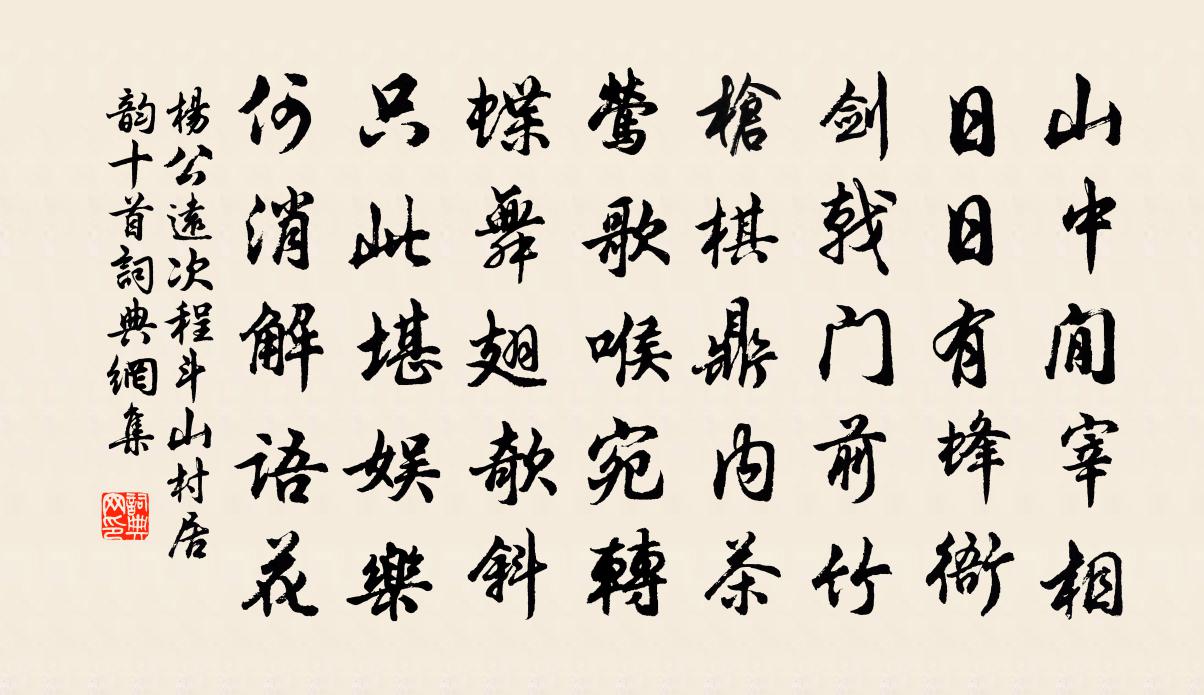 山中閒宰相
日日有蜂衙
劍戟门前竹
槍棋鼎内茶
鶯歌喉宛轉
蝶舞翅欹斜
只此堪娱樂
何消解語花
楊公遠次程斗山村居
韵十首詞典網集
詞典网印